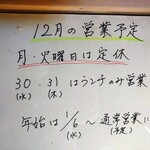 12月の営業予定
月・火曜日は定休
30.31はランチのみ営業
(水) (木)
年始は1/6〜通常営業に
(水) (予定)